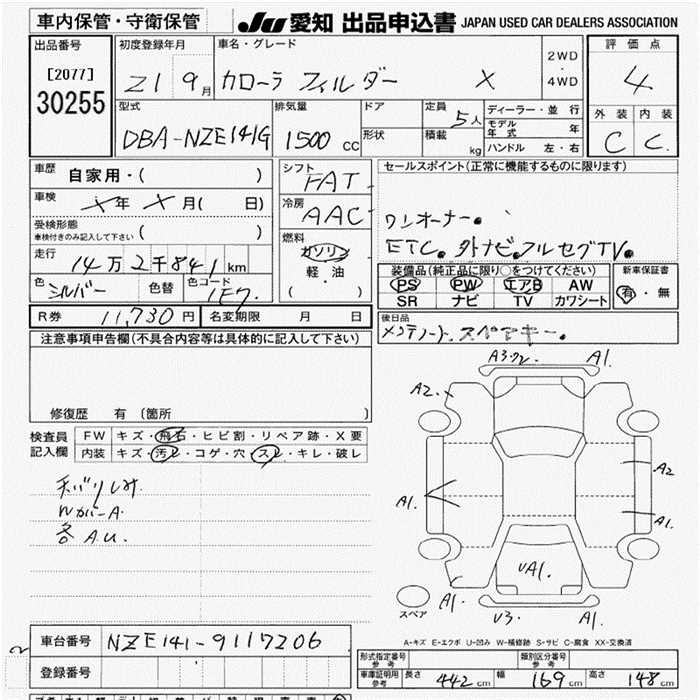 車内保管・守衛保管 JU 愛知 出品申込書 JAPAN USED CAR DEALERS ASSOCIATION
出品番号 初度登録年月 車名・グレード 評価点
[2077] 21 9月 カローラ フィルダー X 2WD・4WD 4
30255
型式 排気量 ドア 定員 5人 ディーラー・並行 外装 内装
DBA-NZE141G 1500 CC 形状 積載 kg モデル年式 年 C C
ハンドル 左・右
車歴 自家用・( ) シフト FAT セールスポイント(正常に機能するものに限ります)
車検 X年 X月( 日) 冷房 AAC ワンオーナー。
受検形態 車検付きのみ記入して下さい ( ) 燃料 ガソリン ETC。外ナビ。フルセグTV。
走行 14万2千841km 軽・油 装備品(純正品に限り○をつけてください) 新車保証書
色 シルバー 色替 色コード 1F7 ( ) PS PW エアB AW 有・無
SR ナビ TV カワシート
R券 11,730円 名変期限 月 日 後日品
メンテノート、スペアキー。
注意事項申告欄(不具合内容等は具体的に記入して下さい)
修復歴 有 (箇所 )
検査員 記入欄 FW キズ・飛石・ヒビ割・リペア跡・X要
内装 キズ・汚レ・コゲ・穴・スレ・キレ・破レ
WカバーA
各 A.U.
A1.
A2.
A1.
A2
A1.
UA1.
スペア A1. U3. A1.
A-キズ E-エクボ U-凹み W-補修跡 S-サビ C-腐食 XX-交換済
車台番号 NZE141-9117206
登録番号
形式指定番号 参考 類別区分番号 参考
車庫証明用 参考 長さ 442cm 幅 169cm 高さ 148cm